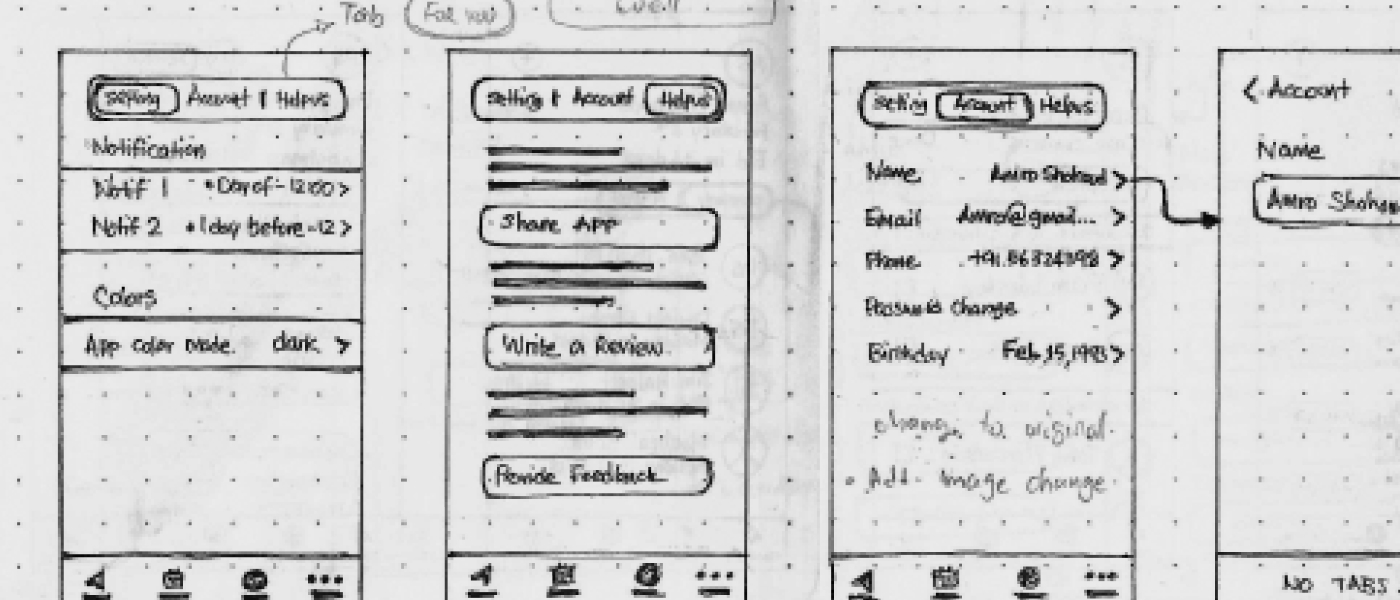 Tab
For you
Setting Account | Helpus
Notification
Notif 1 • Day of - 12:00 >
Notif 2 • 1 day before - 12 >
Colors
App color mode. dark >
Setting | Account Helpus
Share App
Write a Review
Provide Feedback
Setting Account Helpus
Name >
Email @gmail... >
Phone >
Password change >
Birthday Feb, 15, >
change to original.
• Add. image change.
< Account
Name
NO TABS